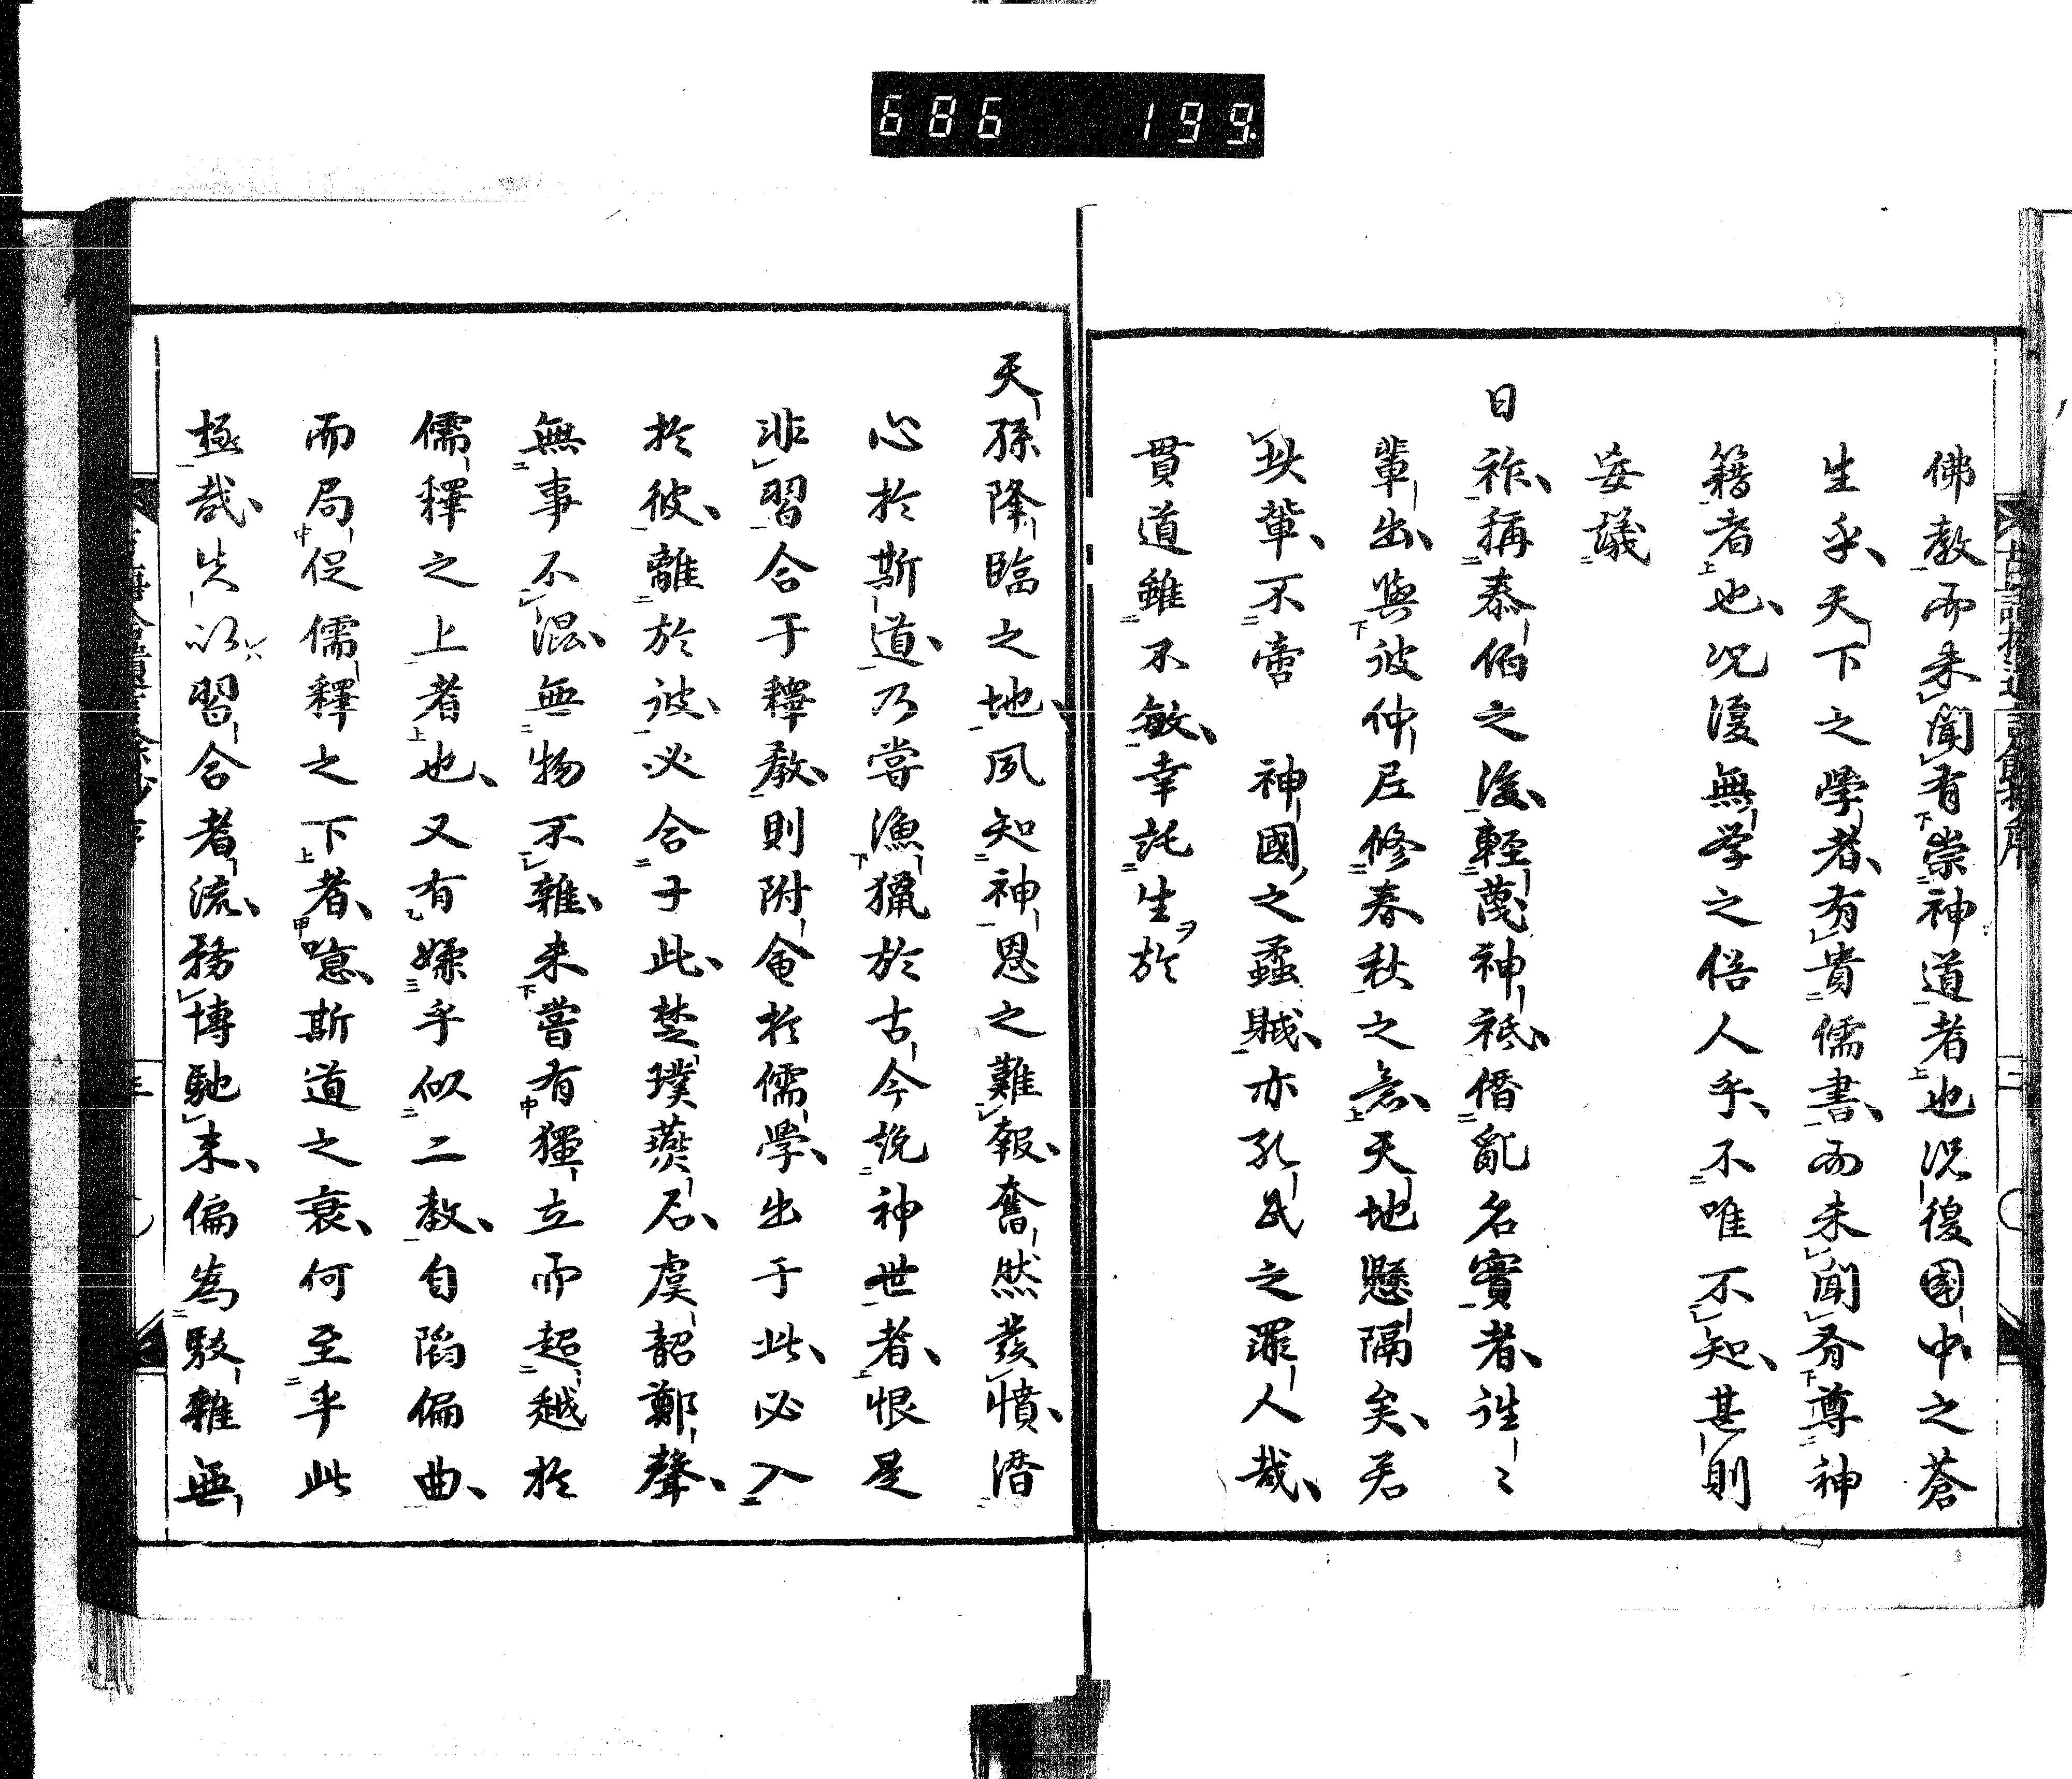 686 199
佛教而未聞有崇神道者也況復國中之蒼
生乎天下之學者有貴儒書而未聞有尊神
籍者也况復無学之俗人乎不唯不知甚則
妄議
日祚稱泰伯之後輕蔑神祇僭亂名實者往〻
輩出與彼仲尼修春秋之意天地懸隔矣若
此輩不啻　神國之蟊賊亦孔氏之罪人哉
貫道雖不敏幸託生ヲ於
天孫降臨之地夙知神恩之難報奮然發憤潛
心於斯道乃嘗漁獵於古今說神世者恨是
非習合于釋教則附會於儒學出于此必入
於彼離於彼必合于此楚璞燕石虞韶鄭聲
無事不混無物不雜未嘗有獨立而超越於
儒釋之上者也又有嫌乎似二教自陷偏曲
而局促儒釋之下者噫斯道之衰何至乎此
極哉失以習合者流務博馳末偏為駁雜無